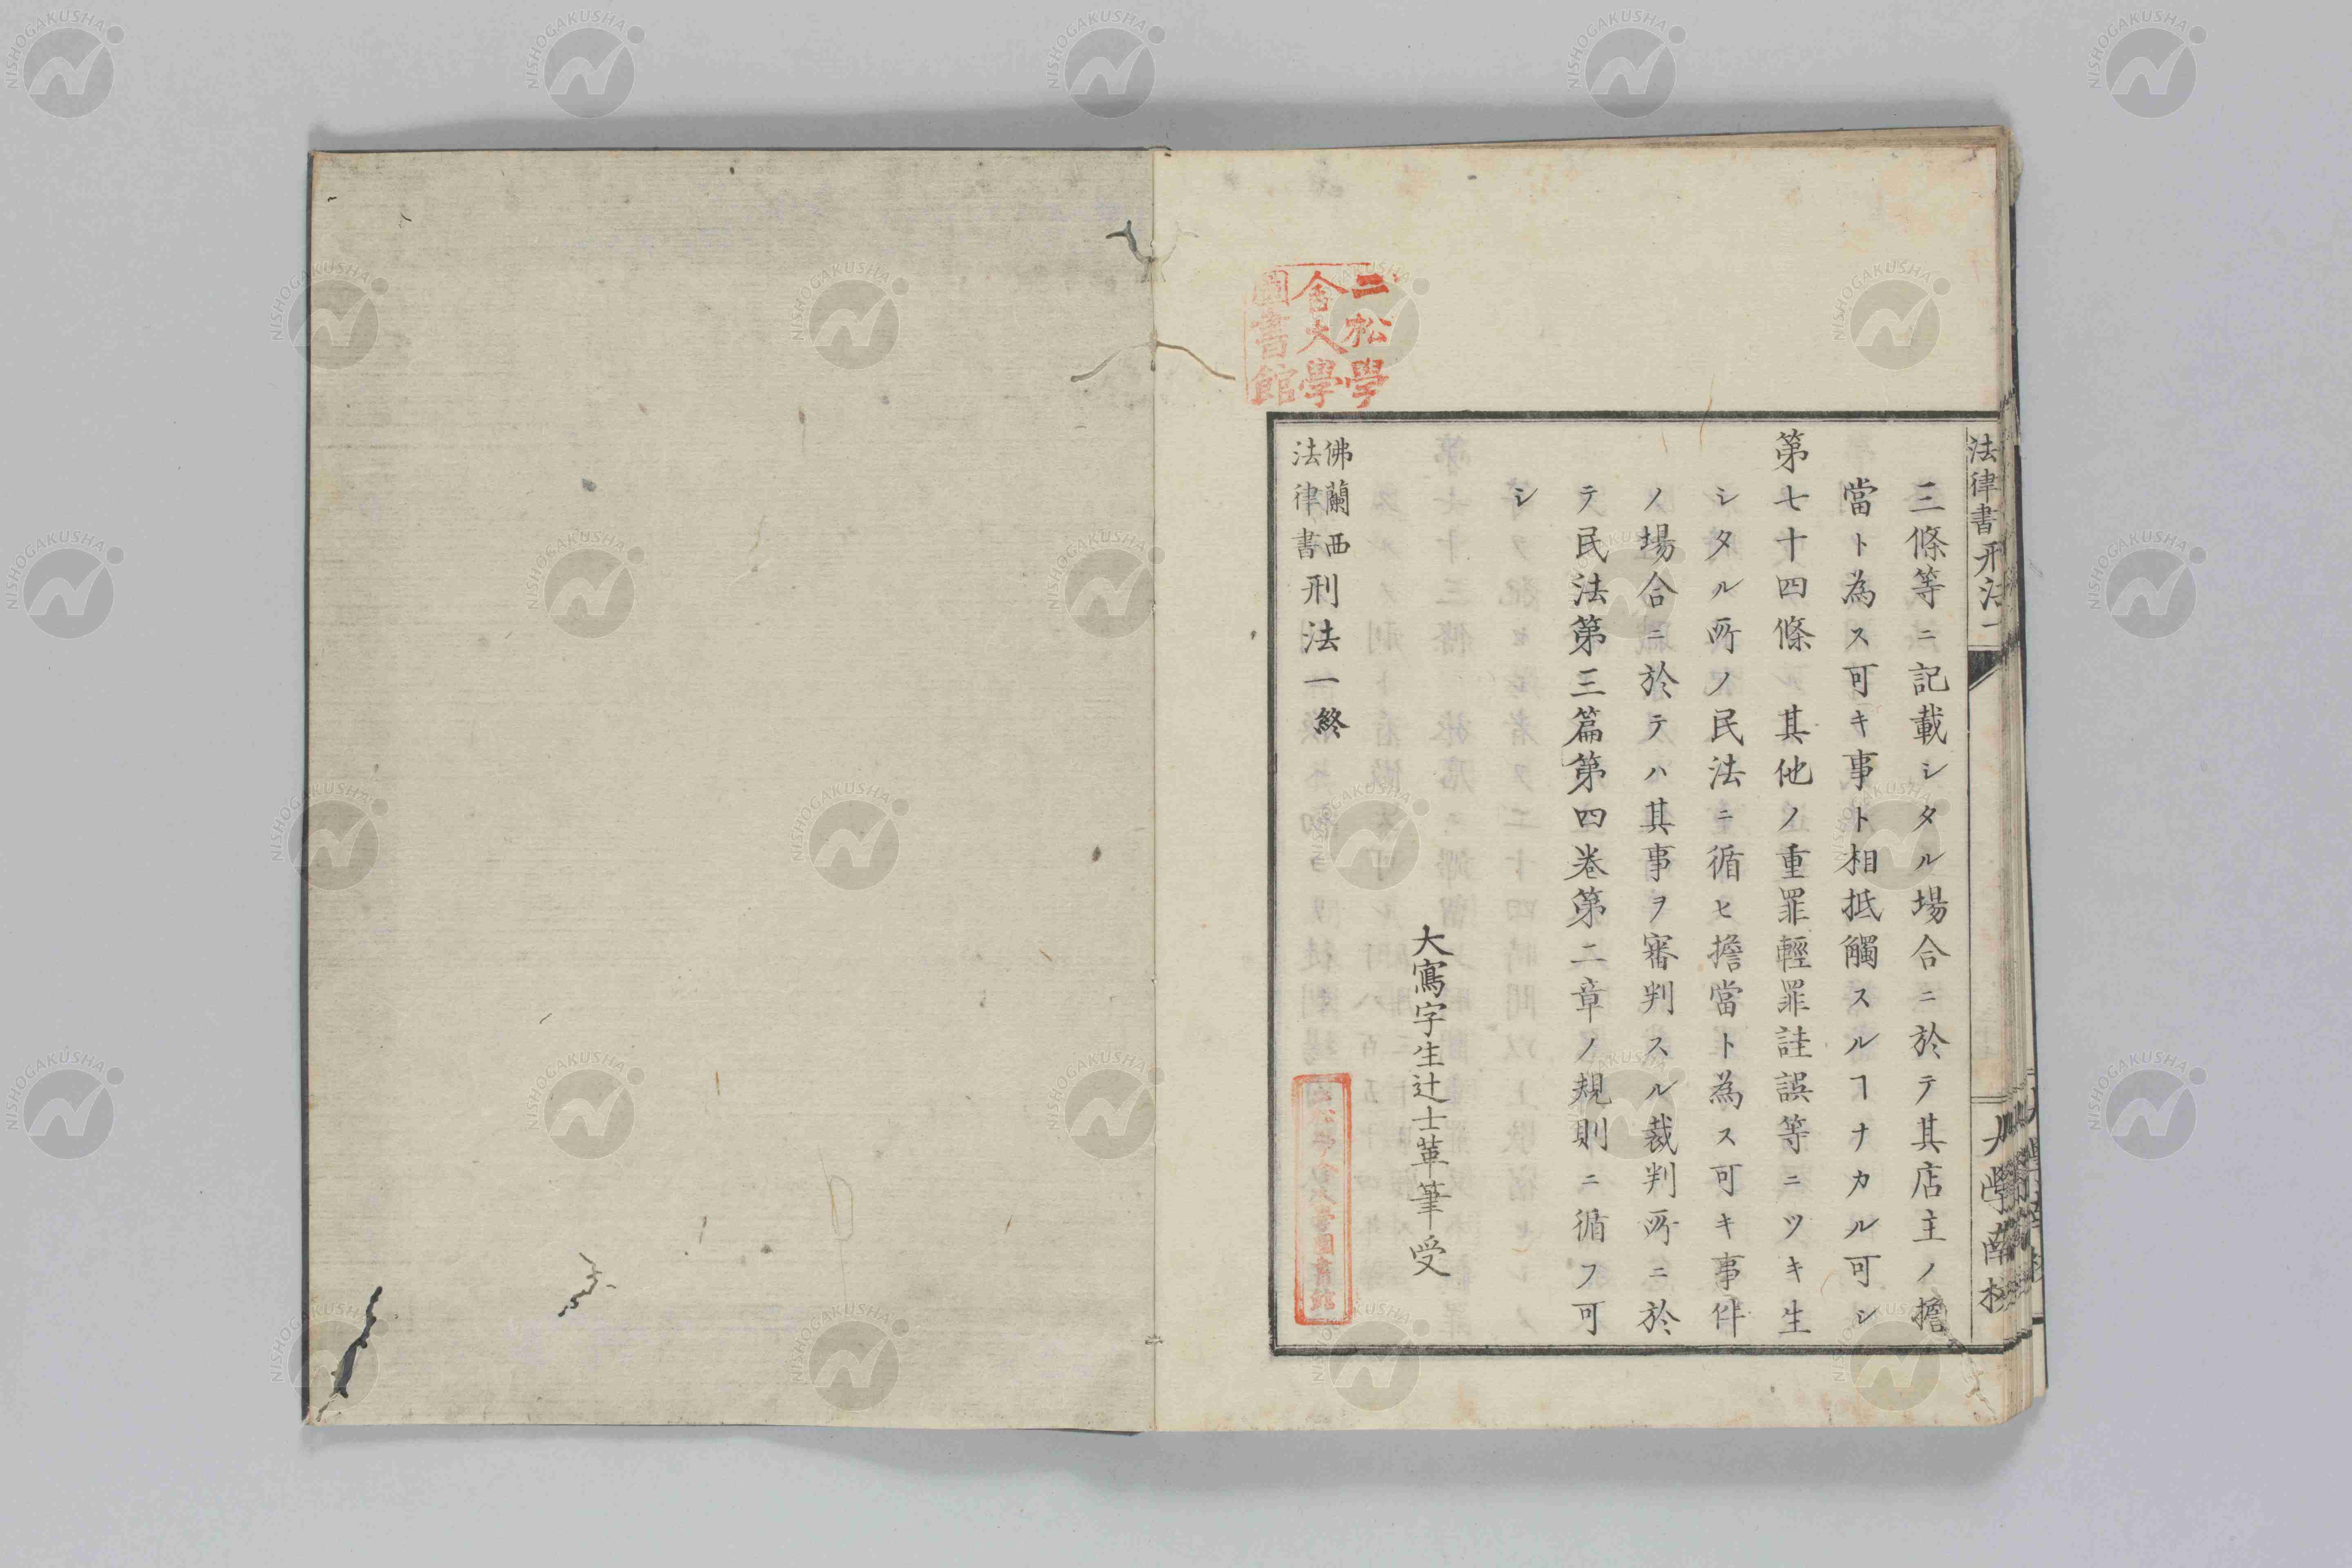 法律書刑法一
大學南校
三條等ニ記載シタル場合ニ於テ其店主ノ擔
當ト為ス可キ事ト相抵觸スルヿナカル可シ
第七十四條其他ノ重罪輕罪註誤等ニツキ生
シタル所ノ民法ニ循ヒ擔當ト為ス可キ事件
ノ場合ニ於テハ其事ヲ審判スル裁判所ニ於
テ民法第三篇第四卷第二章ノ規則ニ循フ可
シ
大寫字生辻士革筆受
佛蘭西
法律書
刑法一終
二松學
舍大學
圖書館
二松學舍大學圖書館
NISHOGAKUSHA